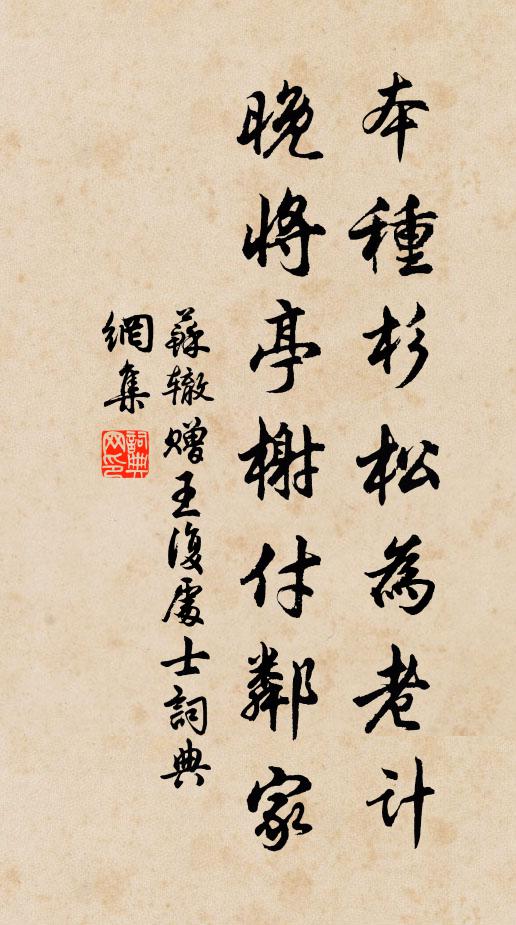 本種杉松為老計
晚將亭榭付鄰家
蘇轍贈王復處士詞典
網集
詞典網印